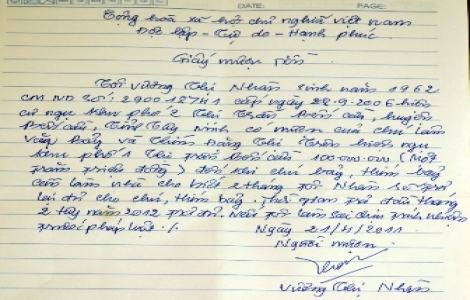 DATE: PAGE:
Cộng hòa xã hội chủ nghĩa việt nam
Độc lập - Tự do - Hạnh phúc.
Giấy mượn tiền
Tôi Vương Thị Nhận sinh năm 1962
CMND Số: 290018741 cấp ngày 28.9.2006 hiện
cư ngụ khu phố 2 Thị Trấn Bến cầu, huyện
Bến cầu, Tỉnh Tây Ninh có mượn của chú
Bảy và Thím Thị Trấn hiện ngụ
khu phố 1 Thị trấn Bến cầu 100.000.000 (Một
trăm triệu đồng) chú bảy, thím bảy
cần làm nhà cho biết 2 tháng tôi Nhận sẽ trả
lại đủ cho chú, thím bảy. Thời gian trả đầu tháng
2 tây năm 2012 trả đủ. Nếu tôi làm sai chịu trách nhiệm
trước pháp luật./.
Ngày 21/4/2011
Người mượn.
Vương Thị Nhận